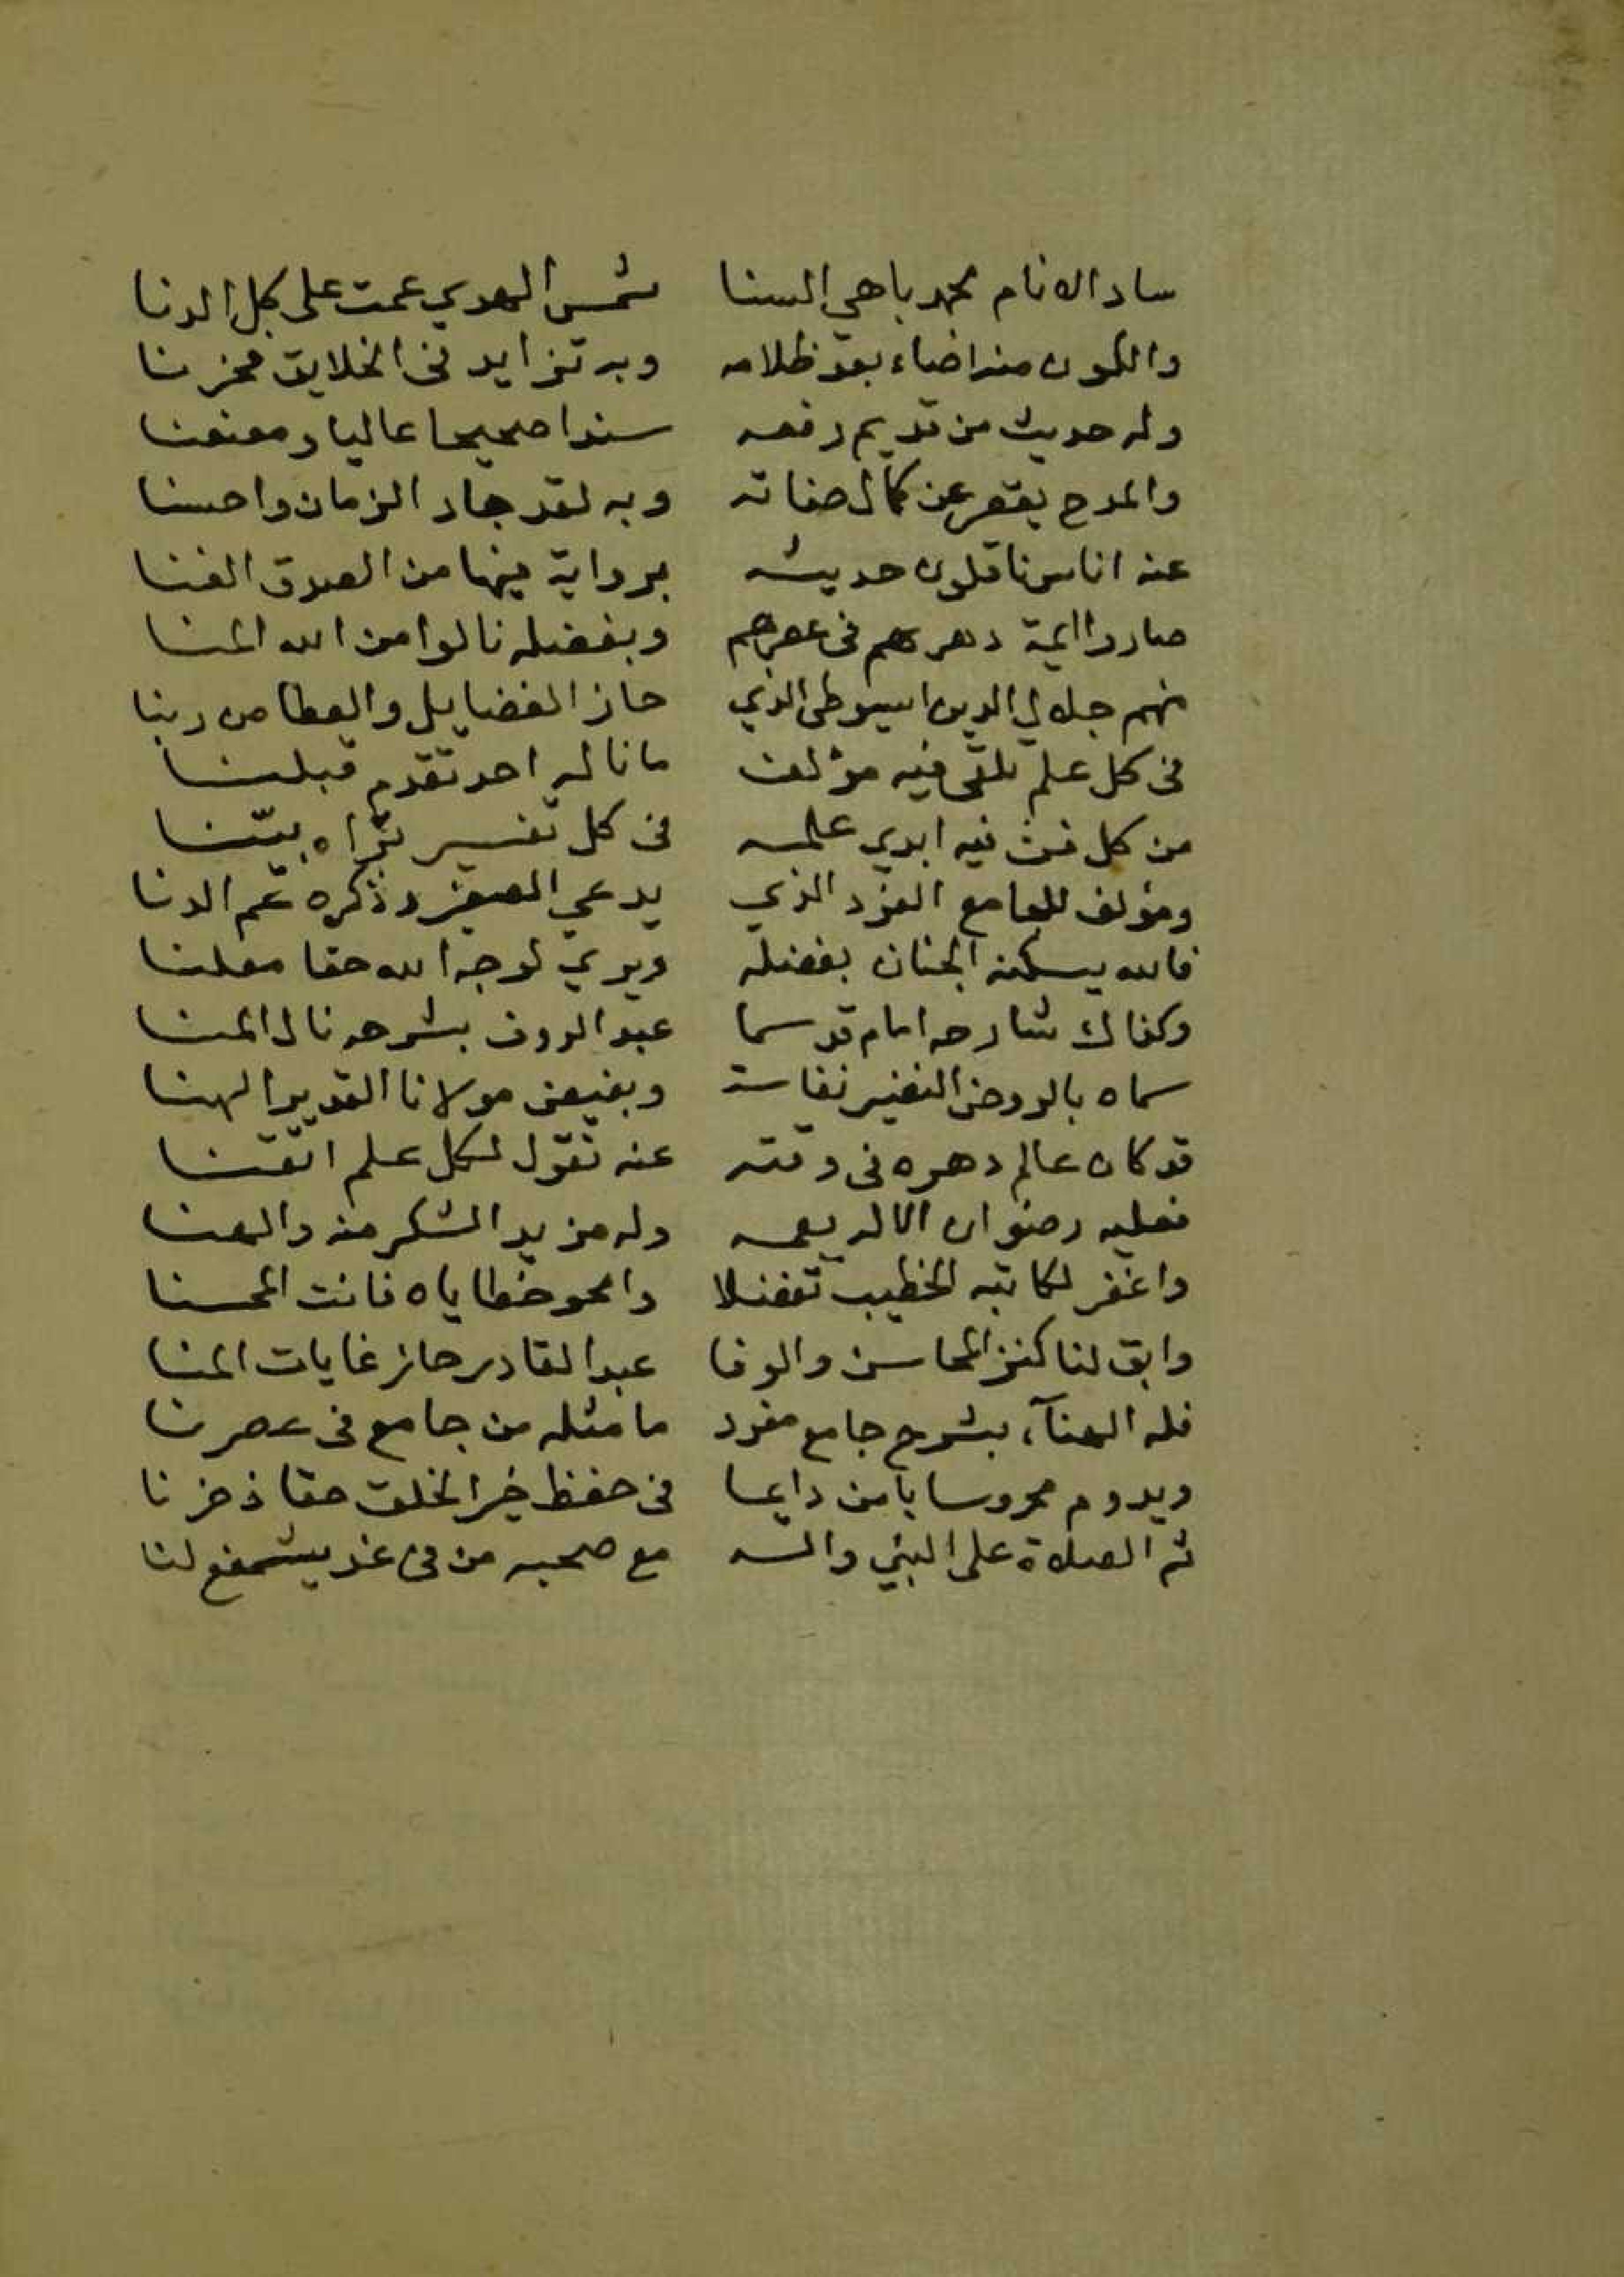 ساد الانام محمد باهي السنا شمس الهدي عمت على كل الدنا
والكون منه اضاء بعد ظلامه وبه تزايد فى الخلايق فخرنا
وله حديث من قديم رفعه سندا صحيحا عاليا ومعنعنا
والمدح يقصر عن كمال صفاته وبه لقد جاد الزمان واحسنا
عنه اناس ناقلون حديثه برواية فيها من الصدق الغنا
صاروا ايمة دهرهم فى عصرهم وبفضله نالوا من الله المنا
منهم جلال الدين اسيوطى الذي حاز الفضايل والعطا من ربنا
فى كل علم تلقى فيه مؤلف ما ناله احد تقدم قبلنا
من كل فن فيه ابدي علمه فى كل تفسير تراه بيّنا
ومؤلف للجامع الفرد الذي يدعي الصغير وذكره عم الدنا
فالله يسكنه الجنان بفضله ويري لوجه الله حقا معلنا
وكفاك شارحه امام قد سما عبد الروف بشرحه نال المنا
سماه بالروض النضير نفاسة وبفيض مولانا القدير الهنا
قد كان عالم دهره فى وقته عنه نقول لكل علم اتقنا
فعليه رضوان الاله يعمه وله مزيد الشكر منه والهنا
واغفر لكاتبه الخطيب تفضلا وامحو خطاياه فانت المحسنا
وابق لنا كنز المحاسن والوفا عبد القادر حاز غايات المنا
فله الهنآء بشرح جامع مفرد ما مثله من جامع فى عصرنا
ويدوم محروسا بامن دايما فى حفظ خير الخلق حقا ذخرنا
ثم الصلاة على النبي واله مع صحبه من فى غد يشفع لنا